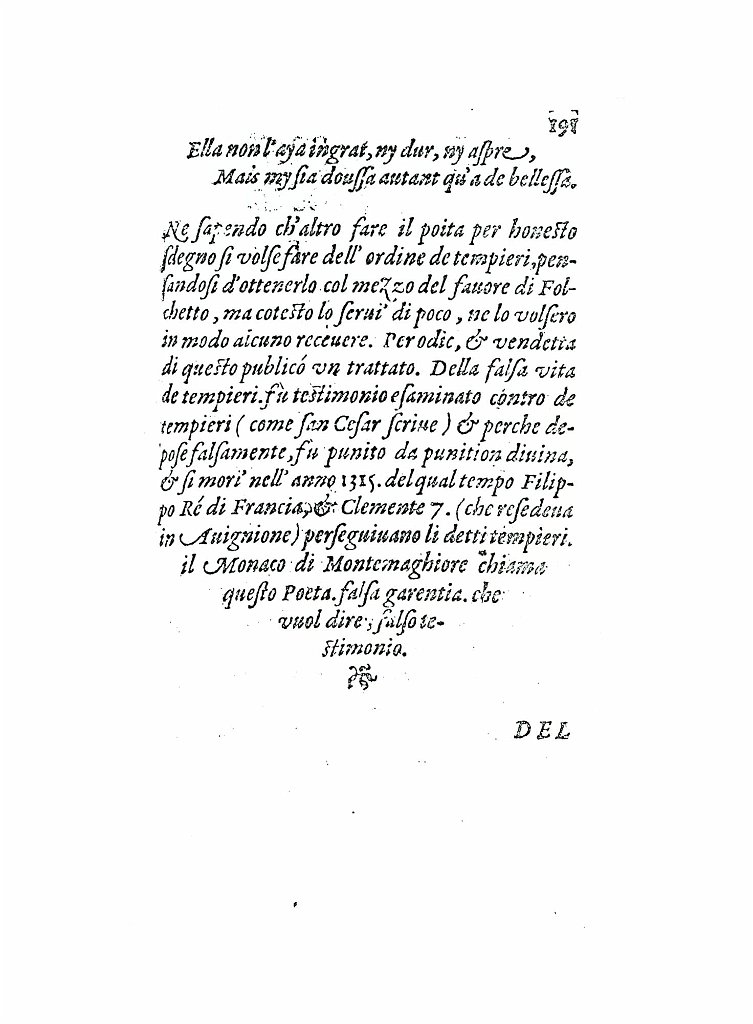 191
Ella non l'aya ingrat, ny dur, ny aſpre,
Mais my ſia douſſa autant qu'a de belleſſa.
Ne ſapendo ch'altro fare il poita per honeſto
ſdegno ſi volſe fare dell' ordine de tempieri, pen-
ſandoſi d'ottenerlo col mezzo del fauore di Fol-
chetto, ma coteſto lo ſerui' di poco, ne lo volſero
in modo alcuno receuere. Per odic, & vendetta
di queſto publicó vn trattato. Della falſa vita
de tempieri. fù teſtimonio eſaminato contro de
tempieri ( come ſan Ceſar ſcriue ) & perche de-
poſe falſamente, fù punito da punition diuina,
& ſi mori' nell' anno 1315. del qual tempo Filip-
po Ré di Francia, & Clemente 7. (che reſedeua
in Auignione) perſeguiuano li detti tempieri.
il Monaco di Montemaghiore chiama
queſto Poeta. falſa garentia. che
vuol dire, falſo te-
ſtimonio.
DEL